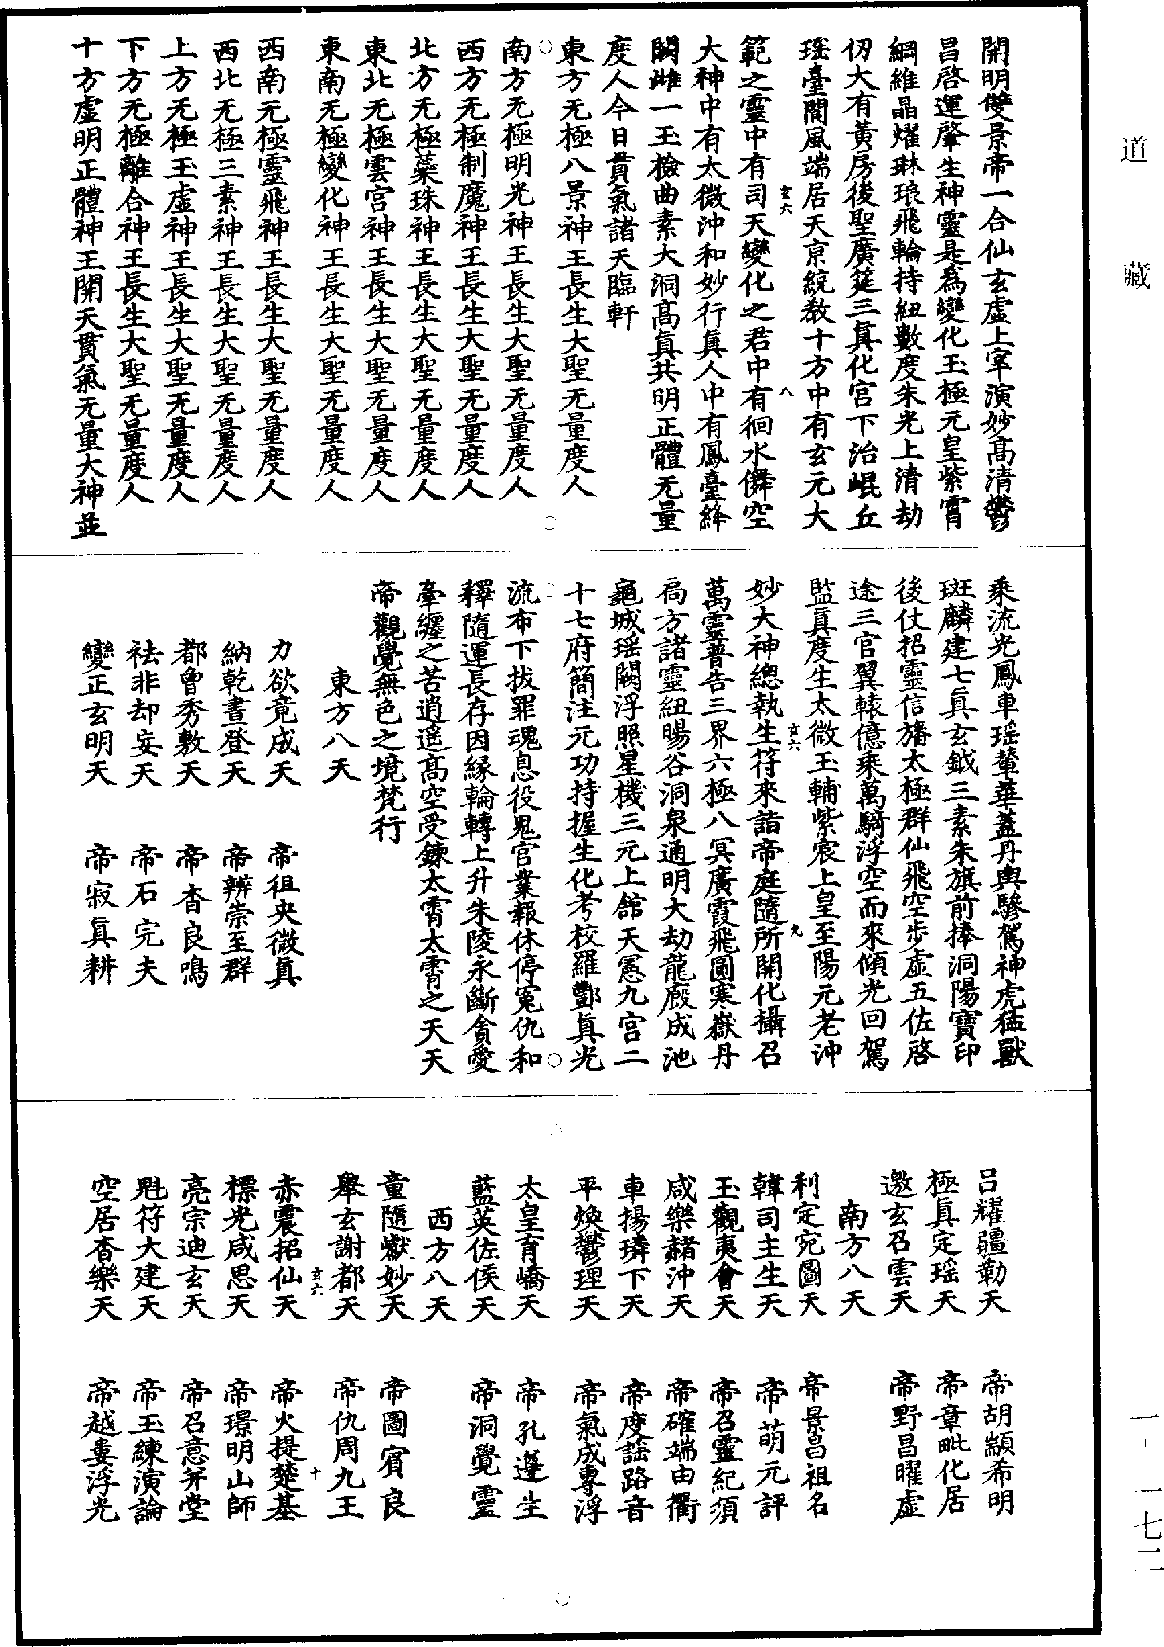 開明雙景帝一合仙玄虛上宰演妙高清鬱
昌啓運肇生神靈是為變化玉極元皇紫霄
綱維晶燿琳琅飛輪持紐數度朱光上清劫
仞大有黃房後聖廣筵三真化官下治崐丘
瑤臺閬風端居天京統教十方中有玄元大
範之靈中有司天變化之君中有徊水儛空
大神中有太微沖和妙行真人中有鳳臺絳
闕雌一玉檢曲素大洞高真共明正體无量
度人今日貫氣諸天臨軒
東方无極八景神王長生大聖无量度人
南方无極明光神王長生大聖无量度人
西方无極制魔神王長生大聖无量度人
北方无極蘂珠神王長生大聖无量度人
東北无極雲宮神王長生大聖无量度人
東南无極變化神王長生大聖无量度人
西南无極靈飛神王長生大聖无量度人
西北无極三素神王長生大聖无量度人
上方无極玉虛神王長生大聖无量度人
下方无極離合神王長生大聖无量度人
十方虛明正體神王開天貫氣无量大神並
玄六
八
乘流光鳳車瑤輦華蓋丹輿驂駕神虎猛獸
斑麟建七真玄鉞三素朱旗前捧洞陽寶印
後仗招靈信旛太極群仙飛空步虛五佐啓
途三官翼轅億乘萬騎浮空而來傾光回駕
監真度生太微玉輔紫宸上皇至陽元老沖
妙大神總執生符來詣帝庭隨所開化攝召
萬靈普告三界六極八冥廣霞飛圖寒嶽丹
扃方諸靈紐暘谷洞泉通明大劫龍廄成池
龜城瑤闕浮照星機三元上舘天憲九宮二
十七府簡注元功持握生化考校羅酆真光
流布下拔罪魂息役鬼官業報休停冤仇和
釋隨運長存因緣輪轉上升朱陵永斷貪愛
牽纏之苦逍遙高空受鍊太霄太霄之天天
帝觀覺無色之境梵行
東方八天
力欲竟成天　帝祖央微真
納乾晝登天　帝辨崇至群
都曾秀敷天　帝杳良鳴
袪非却妄天　帝石完夫
變正玄明天　帝寂真耕
玄六
九
呂耀疆勒天　帝胡顓希明
極真定瑤天　帝章毗化居
邀玄召雲天　帝野昌曜虛
南方八天
利定宛圖天　帝景昌祖名
韓司主生天　帝萌元評
玉觀夷會天　帝召靈紀須
咸樂赭沖天　帝確端由衢
車揚璘下天　帝度謡路音
平煥鬱理天　帝氣成專浮
太皇育嶠天　帝孔蓬生
藍英佐侯天　帝洞覺靈
西方八天
童隨嶽妙天　帝圖賓良
舉玄謝都天　帝仇周九王
赤震招仙天　帝火提楚基
標光咸思天　帝璟明山師
亮宗迪玄天　帝召意并堂
魁符大建天　帝玉練演論
空居杳樂天　帝越婁浮光
玄六
十
道藏
一-一七二